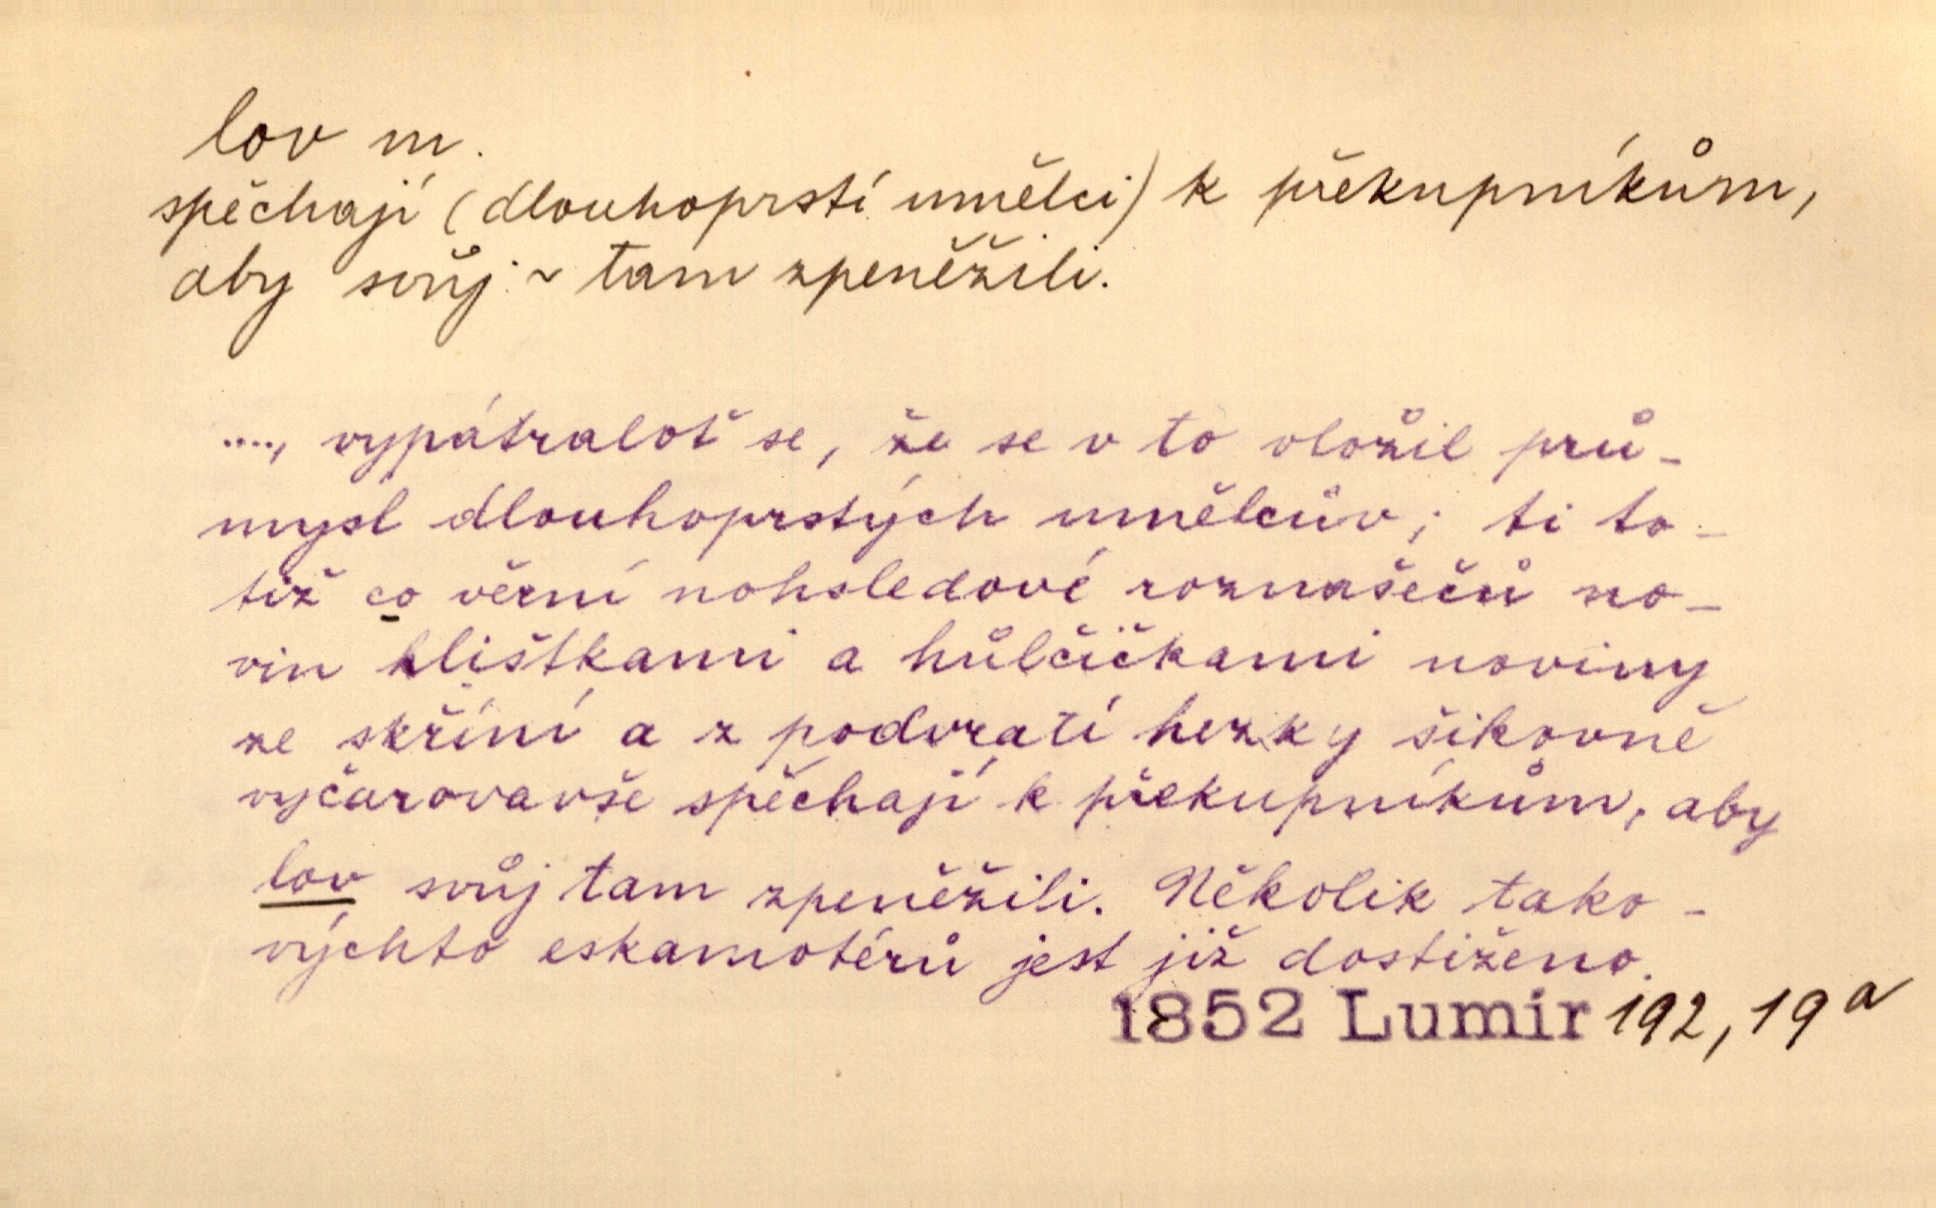 lov m.
spěchají (dlouhoprstí umělci) k překupníkům,
aby svůj ~ tam zpeněžili.
...., vypátraloť se, že se v to vložil prů-
mysl dlouhoprstých umělcův; ti to-
tiž co věrní nohsledové roznašečů no-
vin klišťkami a hůlčičkami noviny
ze skříní a z podvratí hezky šikovně
vyčarovavše spěchají k překupníkům, aby
lov svůj tam zpeněžili. Několik tako-
výchto eskamotérů jest již dostiženo.
1852 Lumír 192, 19 a